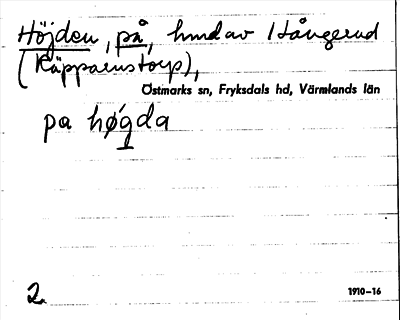 Höjden, på, hmd av 1 Långerud
(Räpparnstorp),
Östmarks sn, Fryksdals hd, Värmlands län
pa hǿgda
2.
1910–16